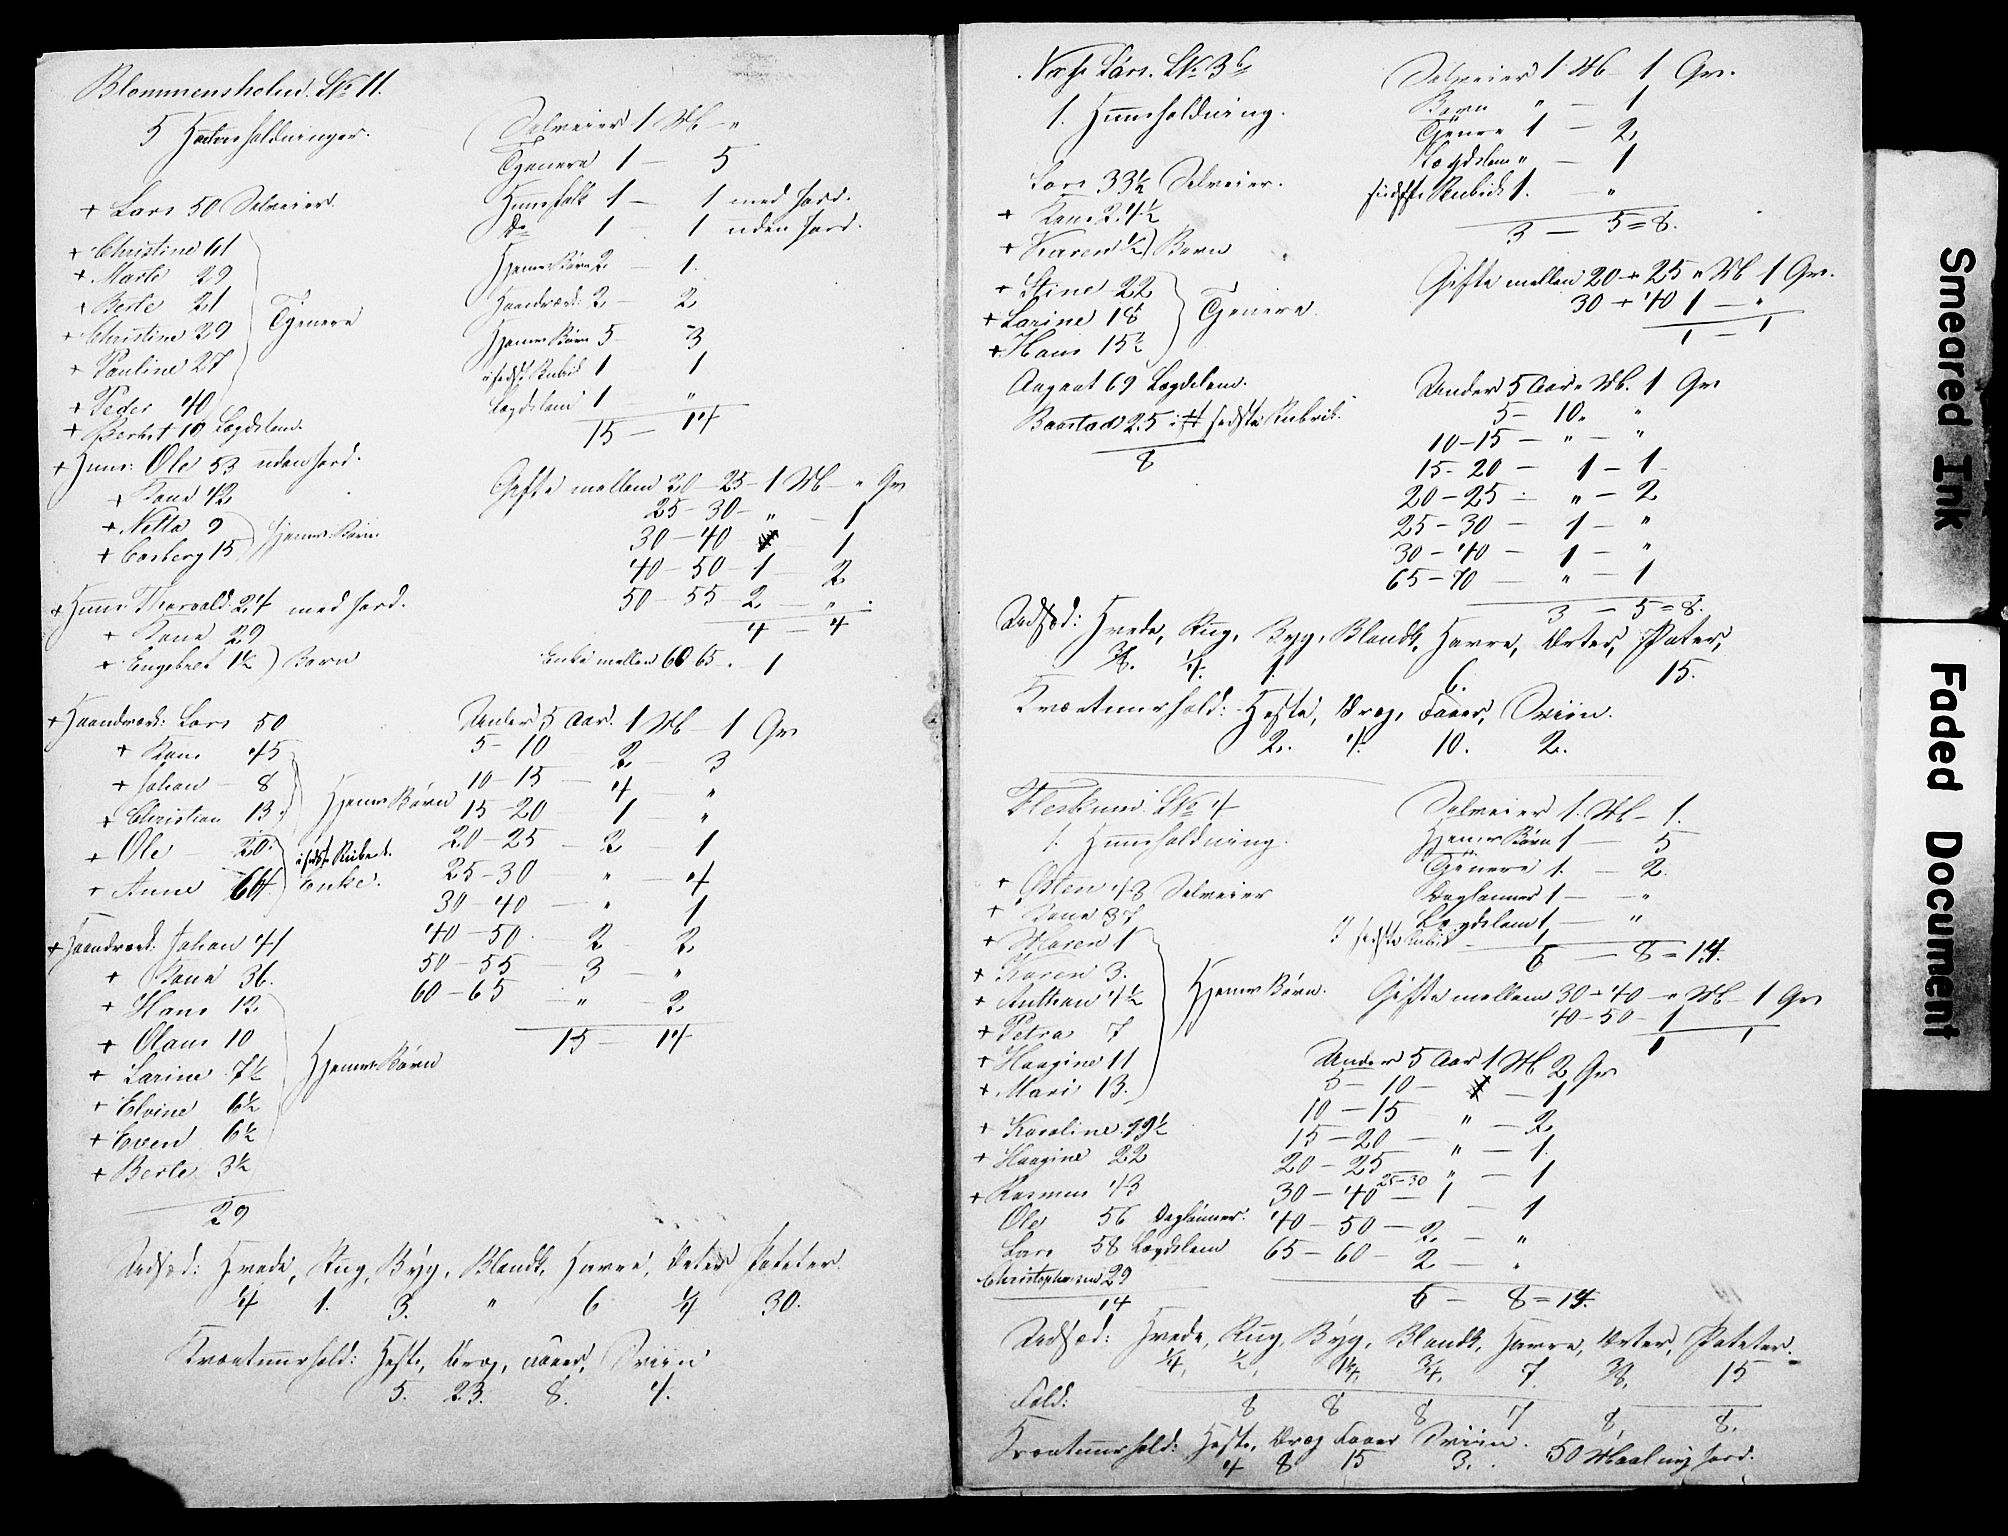 Blommensholm. L№ 11.
5 Huusholdninger.
+ Lars 50 Selveier.
+ Christine 61
+ Marte 29
+ Berte 21
+ Christine 29
+ Pauline 27
+ Peder 40
Tjenere
+ Berthe 19 Lægdslem.
+ Huus: Ole 53 uden Jord.
+ Kone 42
+ Netta 9
+ Carlberg 15
Hjemv Børn
+ Huus Thorvald 24 med Jord.
+ Kone 29
+ Engebret 1½ ) Barn
+ Haandværk: Lars 50
+ Kone 45
+ Johan – 8
+ Christian 13
Hjemv Børn
+ Ole – 20
i sidste Rubrik.
+ Anne 64
Enke.
+ Haandværk. Johan 41
+ Kone 36.
+ Hans 12
+ Olaus 10
+ Larine 7½
+ Elvine 6½
+ Even 6½
+ Berte 3½
Hjemv Børn
29
Selveier 1 M – "
Tjenere 1 – 5
Huusfolk 1 – 1 med Jord.
do 1 – 1 uden Jord.
Hjemv Børn 2 – 1.
Haandværk: 2 – 2
Hjemv Børn 5 – 3
i sidste Rubrik 1 – 1
Lægdslem 1 – "
15 – 14
Gifte mellem 20 – 25 – 1 M – " Qv
25 – 30 – " – 1
30 – 40 – 1
40 – 50 – 1 – 2
50 – 55 – 2 – "
4 – 4
Enke mellem 60 65 – " 1
Under 5 Aar. 1 M – 1 Qv
5 – 10 2 – 3
10 – 15 – 4 – "
15 – 20 1 – "
20 – 25 – 2 – 1
25 – 30 – " – 4
30 – 40 – " 1
40 – 50 – 2 – 2
50 – 55 – 3 – "
60 – 65 – " – 2
15 – 14
Udsæd: Hvede, Rug, Byg, Blandk, Havre, Erter Poteter.
¼ 1. 3. " 6 ¼ 30.
Kreaturhold: Heste, Kvæg, Faarer, Sviin
5. 23. 8. 4.
Næs Lars. L№ 3 b
1. Huusholdning.
Lars 33½ Selveier.
+ Kone 24½
+ Karen ½ ) Barn
+ Stine 22
+ Larine 18
+ Hans 15½
Tjenere.
August 69 Lægdslem.
Baastad 25 i sidste Rubrik.
8
Selveier 1 M – 1 Qv.
Barn " – 1
Tjenere 1 – 2
Lægdslem " – 1
sidste Rubrik 1. – "
3 – 5 = 8.
Gifte mellem 20 + 25 " M 1 Qv.
30 + 40 1 – "
1 – 1
Under 5 Aar " M. 1 Qv
5 – 10 " "
10 – 15 – " – "
15 – 20 – 1 – 1
20 – 25 – " – 2
25 – 30 – 1 – "
30 – 40 – 1 – "
65 – 70 – " – 1
3 – 5 = 8.
Udsæd: Hvede, Rug, Byg, Blandk, Havre, Erter, Poteter,
⅜. ¼. 1. 6. 15.
Kreaturhold: Heste, Kvæg, Faarer, Sviin.
2. 4. 10. 2.
L№ 4
1. Huusholdning.
+ Osten 43 Selveier
+ Kone 37
+ Maren 1
+ Karen 3.
+ Anthon 4½
+ Petra 7
+ Haagine 11
+ Mari 13.
Hjemv Børn.
+ Karoline 19½
+ Haagine 22
+ Rasmus 43
Ole 56 Dagløner.
Lars 58 Lægdslem
Christophersen 29
14
Selveier 1. M – 1.
Hjemv Børn 1 – 5
Tjenere 1. – 2.
Dagløner 1 – "
Lægdslem 1 – "
i sidste Rubrik 1
6 – 8 = 14.
Gifte mellem 30 + 40 – " M – 1 Qv
40 – 50 – 1
1 1
Under 5 Aar 1 M 2 Qv
5 – 10 – 1
10 – 15 " – 2
15 – 20 – " – 1.
20 – 25 " – 1
25 – 30
30 – 40 – 1 – 1
40 – 50 – 2 – "
65 – 60 – 2 – "
6 – 8 = 14.
Udsæd: Hvede, Rug, Byg, Blandk, Havre, Erter, Poteter.
¼, ½, 1¼, ¾, 7. ⅜. 15
Fold: 8 8 8 7 8. 8.
Kreaturhold: Heste, Kvæg Faarer Sviin. 50 Maal ny Jord.
4 8 15 3.
Smeared Ink
Faded Document